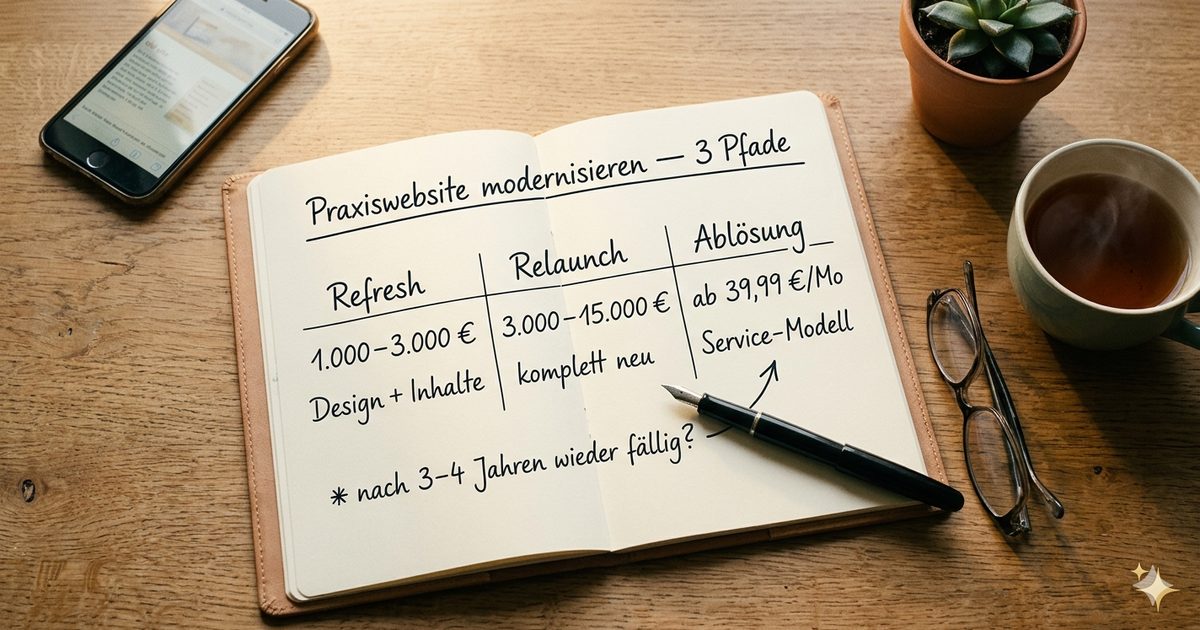 Praxiswebsite modernisieren — 3 Pfade
Refresh
1.000–3.000 €
Design + Inhalte
Relaunch
3.000–15.000 €
komplett neu
Ablösung
ab 39,99 €/Mo
Service-Modell
* nach 3–4 Jahren wieder fällig?